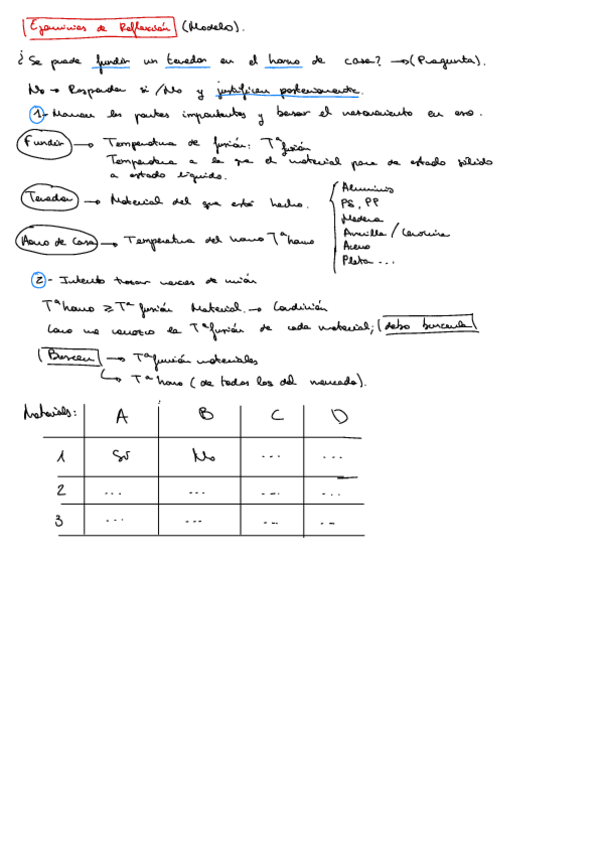 Ejercicios de Reflexión (Modelo).
¿Se puede fundir un tenedor en el horno de casa? → (Pregunta).
No → Responder si/No y justificar posteriormente.
1- Marcar las partes importantes y basar el razonamiento en eso.
Fundir → Temperatura de fusión: Tª fusión
Temperatura a la que el material pasa de estado sólido
a estado líquido.
Tenedor → Material del que está hecho.
Aluminio
PS, PP
Madera
Arcilla / Cerámica
Acero
Plata ...
Horno de casa → Temperatura del horno Tª horno
2- Intento trazar nexos de unión
Tª horno ≥ Tª fusión Material. → Condición
Como no conozco la Tª fusión de cada material; debo buscarla
Buscar → Tª fusión materiales
↳ Tª horno (de todos los del mercado).
Materiales: A B C D
1 Sí No ... ...
2 ... ... ... ...
3 ... ... ... ...